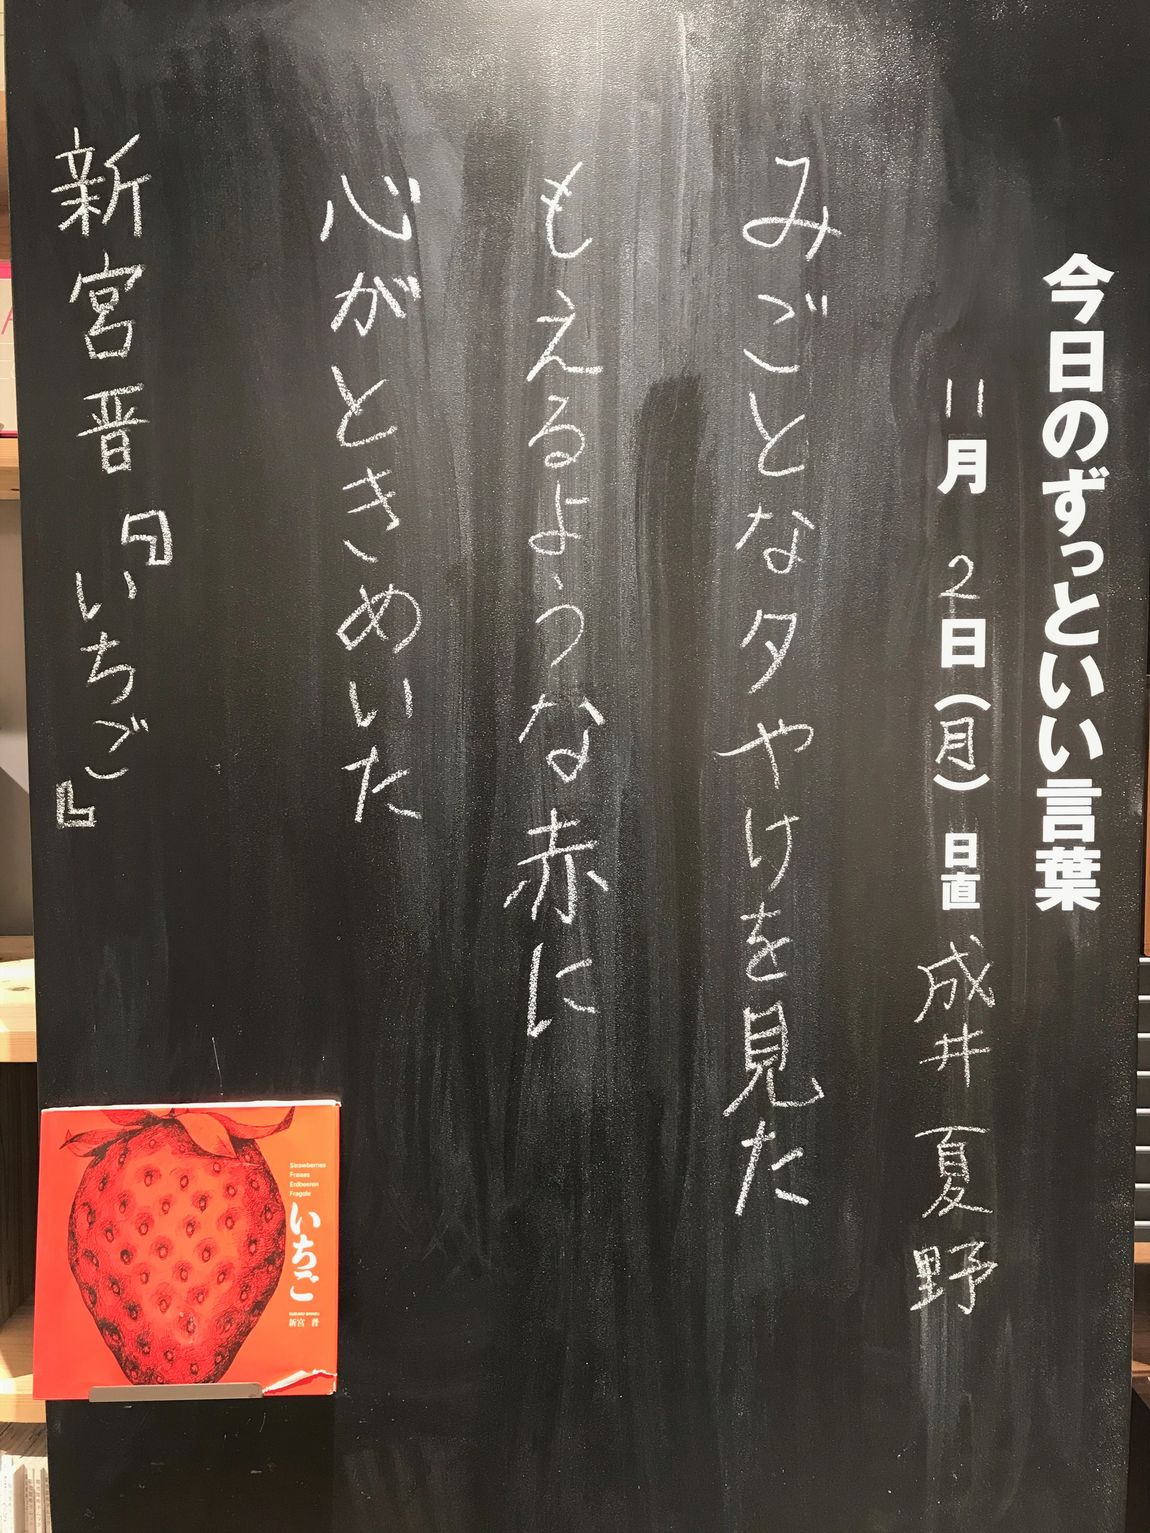 今日のずっといい言葉
11月 2日(月) 日直 成井 夏野
みごとな夕やけを見た
もえるような赤に
心がときめいた
新宮晋『いちご』
Strawberries
Fraises
Erdbeeren
Fragole
いちご
新宮 晋